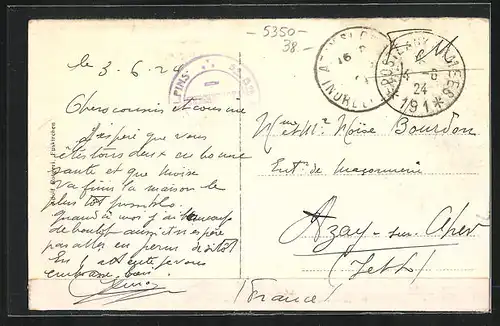 5350-
38.-
le 3.6.24
POSTE AUX ARMEES
3-6
24
*191*
Chers cousins et cousine
J'espère que vous
êtes tous deux en bonne
santé et que Moïse
va finir la maison le
plus tôt possible.
Quand à moi j'ai beaucoup
de boulot aussi et n'espère
pas aller en perm de sitôt
En attente je vous
embrasse bien
Mme et Mr Moïse Bourdon
Ent. de maçonnerie
Azay-sur-Cher
(I et L)
(France)